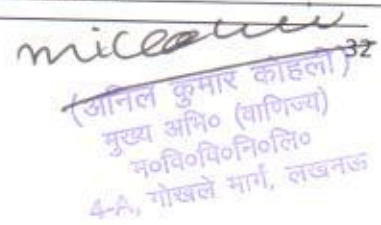 32
(अनिल कुमार कोहली)
मुख्य अभि० (वाणिज्य)
म०वि०वि०नि०लि०
4-A, गोखले मार्ग, लखनऊ